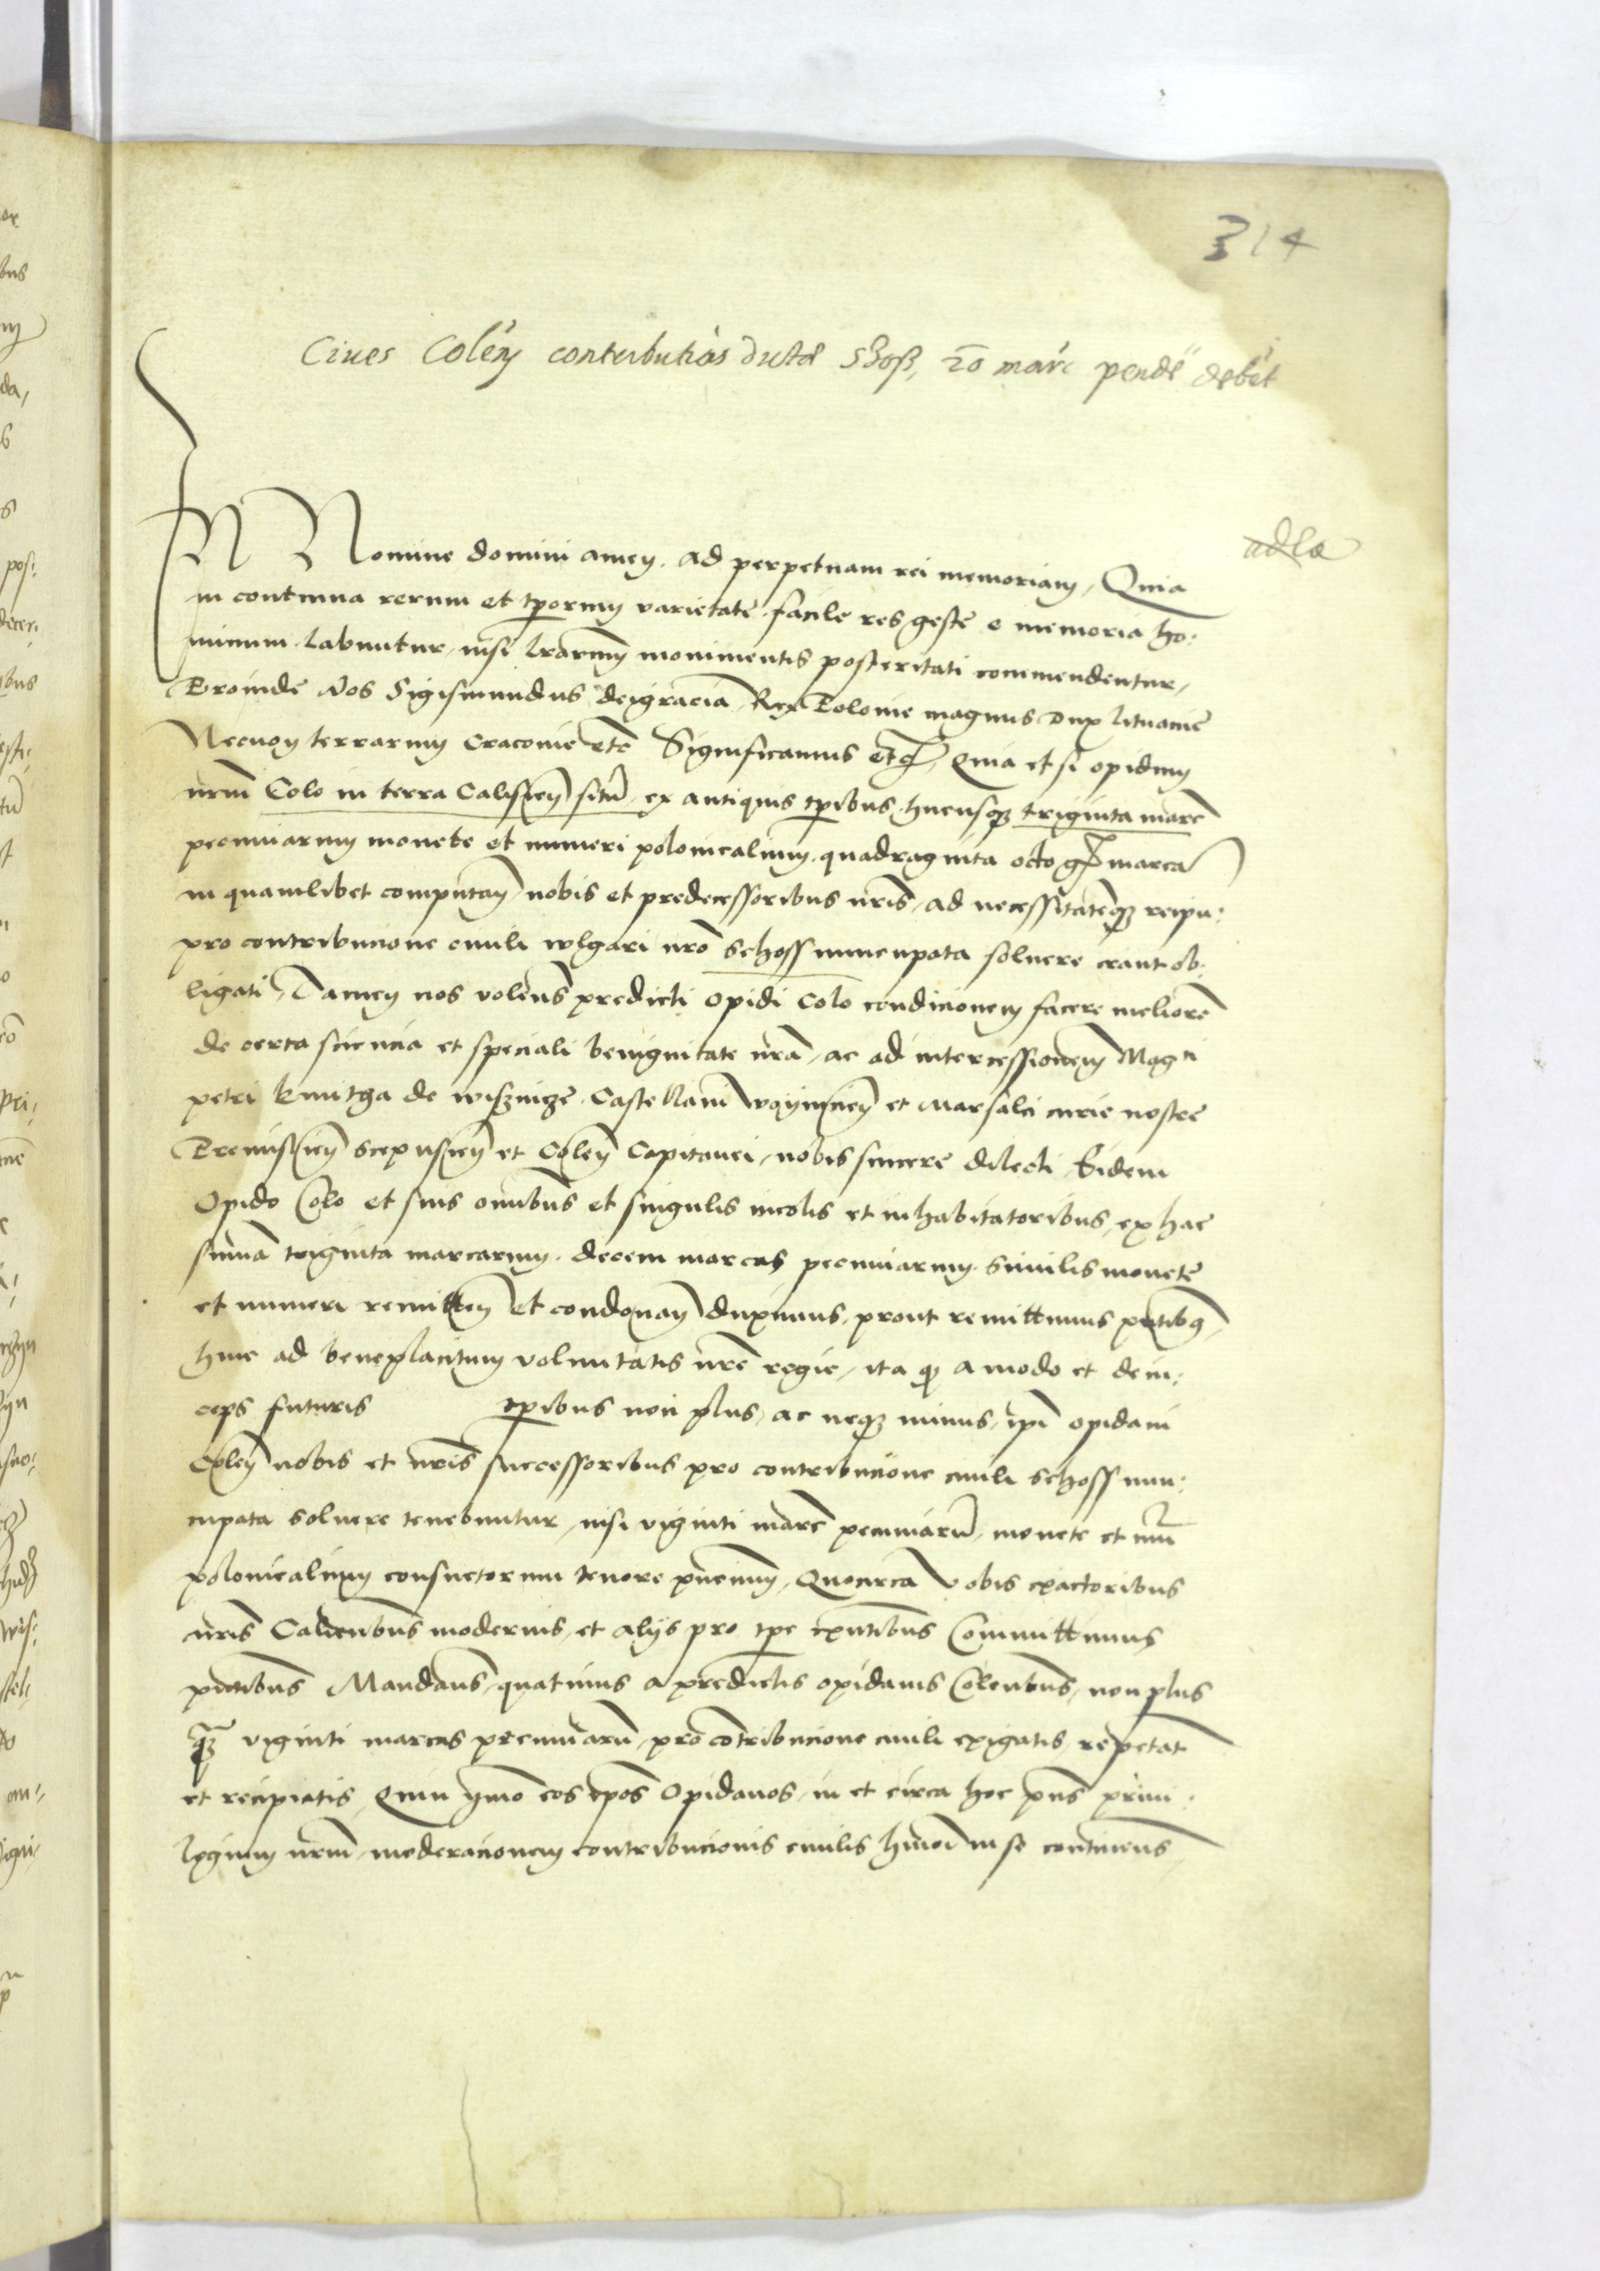 314
Ciues Coleñ contributiõs dictã Shoß, 20 marc pendẽ debẽt
IN Nomine domini amen. ad perpetuam rei memoriam, Quia
in continua rerum et tp̃orum varietate facile res geste e memoria ho:
minum labuntur, nisi lr̃arum monimentis posteritati commendentur,
Proinde Nos Sigismundus deigracia Rex Polonie magnus Dux lituanie
Necnon terrarum Cracouie etc̃ Significamus etc̃, Quia etsi opidum
nr̃m Colo in terra Calissieñ situ̅ ex antiquis tp̃ibus hucusq3 triginta marc̃
pecuniarum monete et numeri polonicalium quadraginta octo gr̃ marca
in quamlibet computañ nobis et predecessoribus nr̃is, ad necessitateq3 reipu:
pro contribucione ciuili wlgari nr̃o schoss nuncupata soluere erant ob:
ligati, Tamen nos volens̃ predicti opidi Colo condicionem facere meliorẽ
de certa sciencia et speciali benignitate nr̃a, ac ad intercessionem Mag̃ci
petri kmitha de wisznicze Castellani woyniceñ et Marsalci curie nostre
Premislieñ scepusieñ et Coleñ Capitanei, nobis sincere dilecti Eidem
Opido Colo et suis omĩbus et singulis incolis et inhabitatoribus, ex hac
summa triginta marcarum. decem marcas pecuniarum similis monete
et numeri remitteñ et condonañ duximus, prout remittimus pñtib9,
huic ad beneplacitum voluntatis nr̃e regie, ita q̃ a modo et dein:
ceps futuris tp̃ibus non plus, ac neq3 minus, ip̃i opidani
Coleñ nobis et nr̃is successoribus pro contribucione ciuili schoss nun:
cupata soluere tenebuntur, nisi viginti marc̃ pecuniaru̅, monete et nũi
polonicalium consuetorum tenore pñcium, Quocirca vobis exactoribus
nr̃is Calieñbus modernis, et alijs pro tp̃e exñtibus Committimus
pñtibus Mandans̃, quatinus a predictis opidanis Coleñbus, non plus
q̃3 viginti marcas pecuniaru̅, pro cõtribucione ciuili exigatis, repetat̃
et recipiatis, Quin ymo eos ip̃os Opidanos, in et circa hoc pñs priui:
legium nr̃m, moderacionem contribucionis ciuilis hmõi in se continens̃,